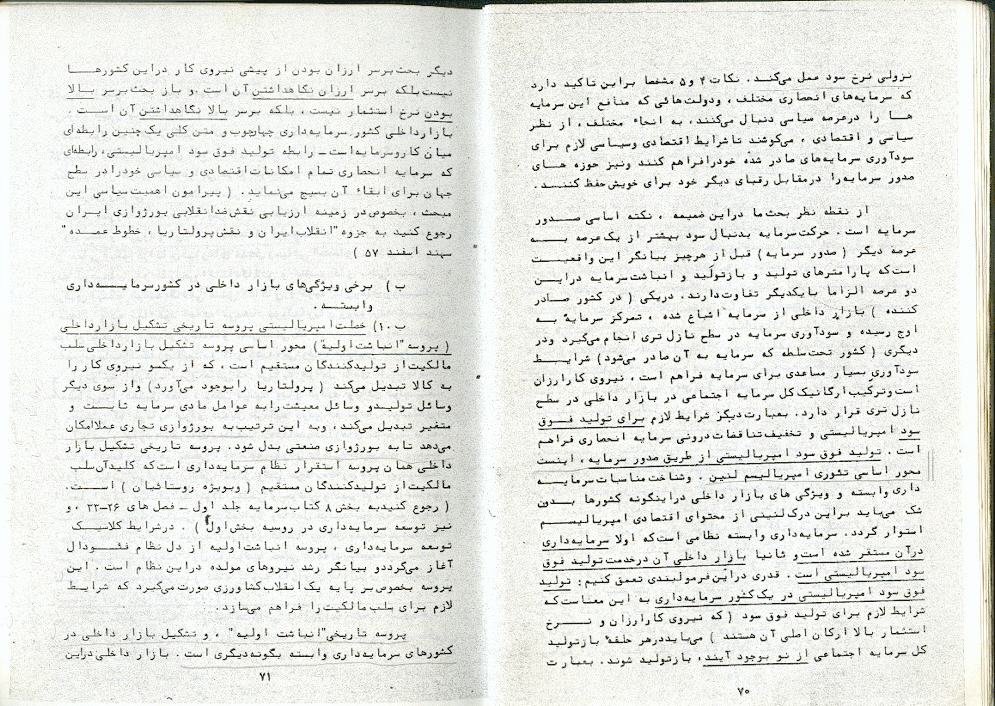 نزولی نرخ سود عمل می‌کند. نکات ۴ و ۵ مشخصا براین تاکید دارد
که سرمایه‌های انحصاری مختلف، ودولت‌هائی که منافع این سرمایه
ها را درعرصه سیاسی دنبال می‌کنند، به انحاء مختلف، از نظر
سیاسی و اقتصادی، می‌کوشند تاشرایط اقتصادی وسیاسی لازم برای
سودآوری سرمایه‌های صادر شده خودرافراهم کنند ونیز حوزه های
صدور سرمایه‌را درمقابل رقبای دیگر خود برای خویش حفظ کننـد.
از نقطه نظر بحث‌ما دراین ضمیمه، نکته اساسی صــدور
سرمایه است. حرکت‌سرمایه بدنبال سود بیشتر از یک‌عرصه بــه
عرصه دیگر (صدور سرمایه) قبل از هرچیز بیانگر این واقعیـت
است‌که پارامترهای تولید و بازتولید و انباشت‌سرمایه درایــن
دو عرصه الزاما بایکدیگر تفاوت‌دارند. دریکی (در کشور صـادر
کننده) بازار داخلی از سرمایه اشباع شده، تمرکز سرمایه بـه
اوج رسیده و سودآوری سرمایه در سطح نازل تری انجام می‌گیرد ودر
دیگری (کشور تحت‌سلطه که سرمایه به آن صادر می‌شود) شرایـط
سودآوری بسیار مساعدی برای سرمایه فراهم است، نیروی کارارزان
است‌وترکیب‌ارگانیک‌کل سرمایه اجتماعی در بازار داخلی در سطح
نازل تری قرار دارد. بعبارت‌دیگر شرایط لازم برای تولید فــوق
سود امپریالیستی و تخفیف‌تناقضات درونی سرمایه انحصاری فراهم
است. تولید فوق سود امپریالیستی از طریق صدور سرمایه، اینست
محور اساسی تئوری امپریالیسم لنین. وشناخت مناسبات سرمایــه
داری وابسته و ویژگی های بازار داخلی دراینگونه کشورها بــدون
شک می‌باید براین درک‌لنینی از محتوای اقتصادی امپریالیســم
استوار گردد. سرمایه‌داری وابسته نظامی است‌که اولا سرمایه‌داری
درآن مستقر شده است‌و ثانیا بازار داخلی آن درخدمت‌تولید فوق
سود امپریالیستی است. قدری دراین‌فرمولبندی تعمق کنیم: تولید
فوق سود امپریالیستی در یک‌کشور سرمایه‌داری به این معناست‌که
شرایط لازم برای تولید فوق سود (که نیروی کارارزان و نــرخ
استثمار بالا ارکان اصلی آن هستند) می‌بایددرهر حلقه بازتولید
کل سرمایه اجتماعی از نو بوجود آیند، بازتولید شوند. بعبارت
۷۰
دیگر بحث‌برسر ارزان بودن از پیشی نیروی کار دراین کشورهــا
نیست‌بلکه برسر ارزان نگاهداشتن آن است. و باز بحث‌برسر بالا
بودن نرخ استثمار نیست، بلکه برسر بالا نگاهداشتن آن اســت.
بازارداخلی کشور سرمایه‌داری چهارچوب و متن کلی یک‌چنین رابطه‌ای
میان کاروسرمایه‌است ــ رابطه تولید فوق سود امپریالیستی، رابطه‌ای
که سرمایه انحصاری تمام امکانات‌اقتصادی و سیاسی خودرادر سطح
جهان برای ابقاء آن بسیج می‌نماید. (پیرامون اهمیت سیاسی این
مبحث، بخصوص‌در زمینه ارزیابی نقش‌ضدانقلابی بورژوازی ایـران
رجوع کنید به جزوه "انقلاب‌ایران و نقش‌پرولتاریا، خطوط عمـده"
سهند اسفند ۵۷)
ب) برخی ویژگی‌های بازار داخلی در کشورسرمایــه‌داری
وابستـه.
ب.۱۰) خصلت‌امپریالیستی پروسه تاریخی تشکیل بازارداخلی
(پروسه "انباشت اولیه") محور اساسی پروسه تشکیل بازارداخلی‌سلب
مالکیت‌از تولیدکنندگان مستقیم است، که از یکسو نیروی کار را
به کالا تبدیل می‌کند (پرولتاریا رابوجود می‌آورد) واز سوی دیگر
وسائل تولیدو وسائل معیشت‌رابه عوامل مادی سرمایه ثابــت و
متغیر تبدیل می‌کند، وبه این ترتیب‌به بورژوازی تجاری عملاامکان
می‌دهد تابه بورژوازی صنعتی بدل شود. پروسه تاریخی تشکیل بازار
داخلی همان پروسه استقرار نظام سرمایه‌داری است‌که کلیدآن‌سلب
مالکیت‌از تولیدکنندگان مستقیم (وبویژه روستائیان) اســت.
(رجوع کنیدبه بخش ۸ کتاب‌سرمایه جلد اول ــ فصل های ۲۶-۳۳، و
نیز توسعه سرمایه‌داری در روسیه بخش‌اول). درشرایط کلاسیــک
توسعه سرمایه‌داری، پروسه انباشت‌اولیه از دل نظام فئــودال
آغاز می‌گرددو بیانگر رشد نیروهای مولده دراین نظام است. این
پروسه بخصوص‌بر پایه یک‌انقلاب‌کشاورزی صورت‌می‌گیرد که شرایـط
لازم برای سلب مالکیت را فراهم می‌سازد.
پروسه تاریخی"انباشت اولیه"، و تشکیل بازار داخلی در
کشورهای سرمایه‌داری وابسته بگونه‌دیگری است. بازار داخلی دراین
۷۱